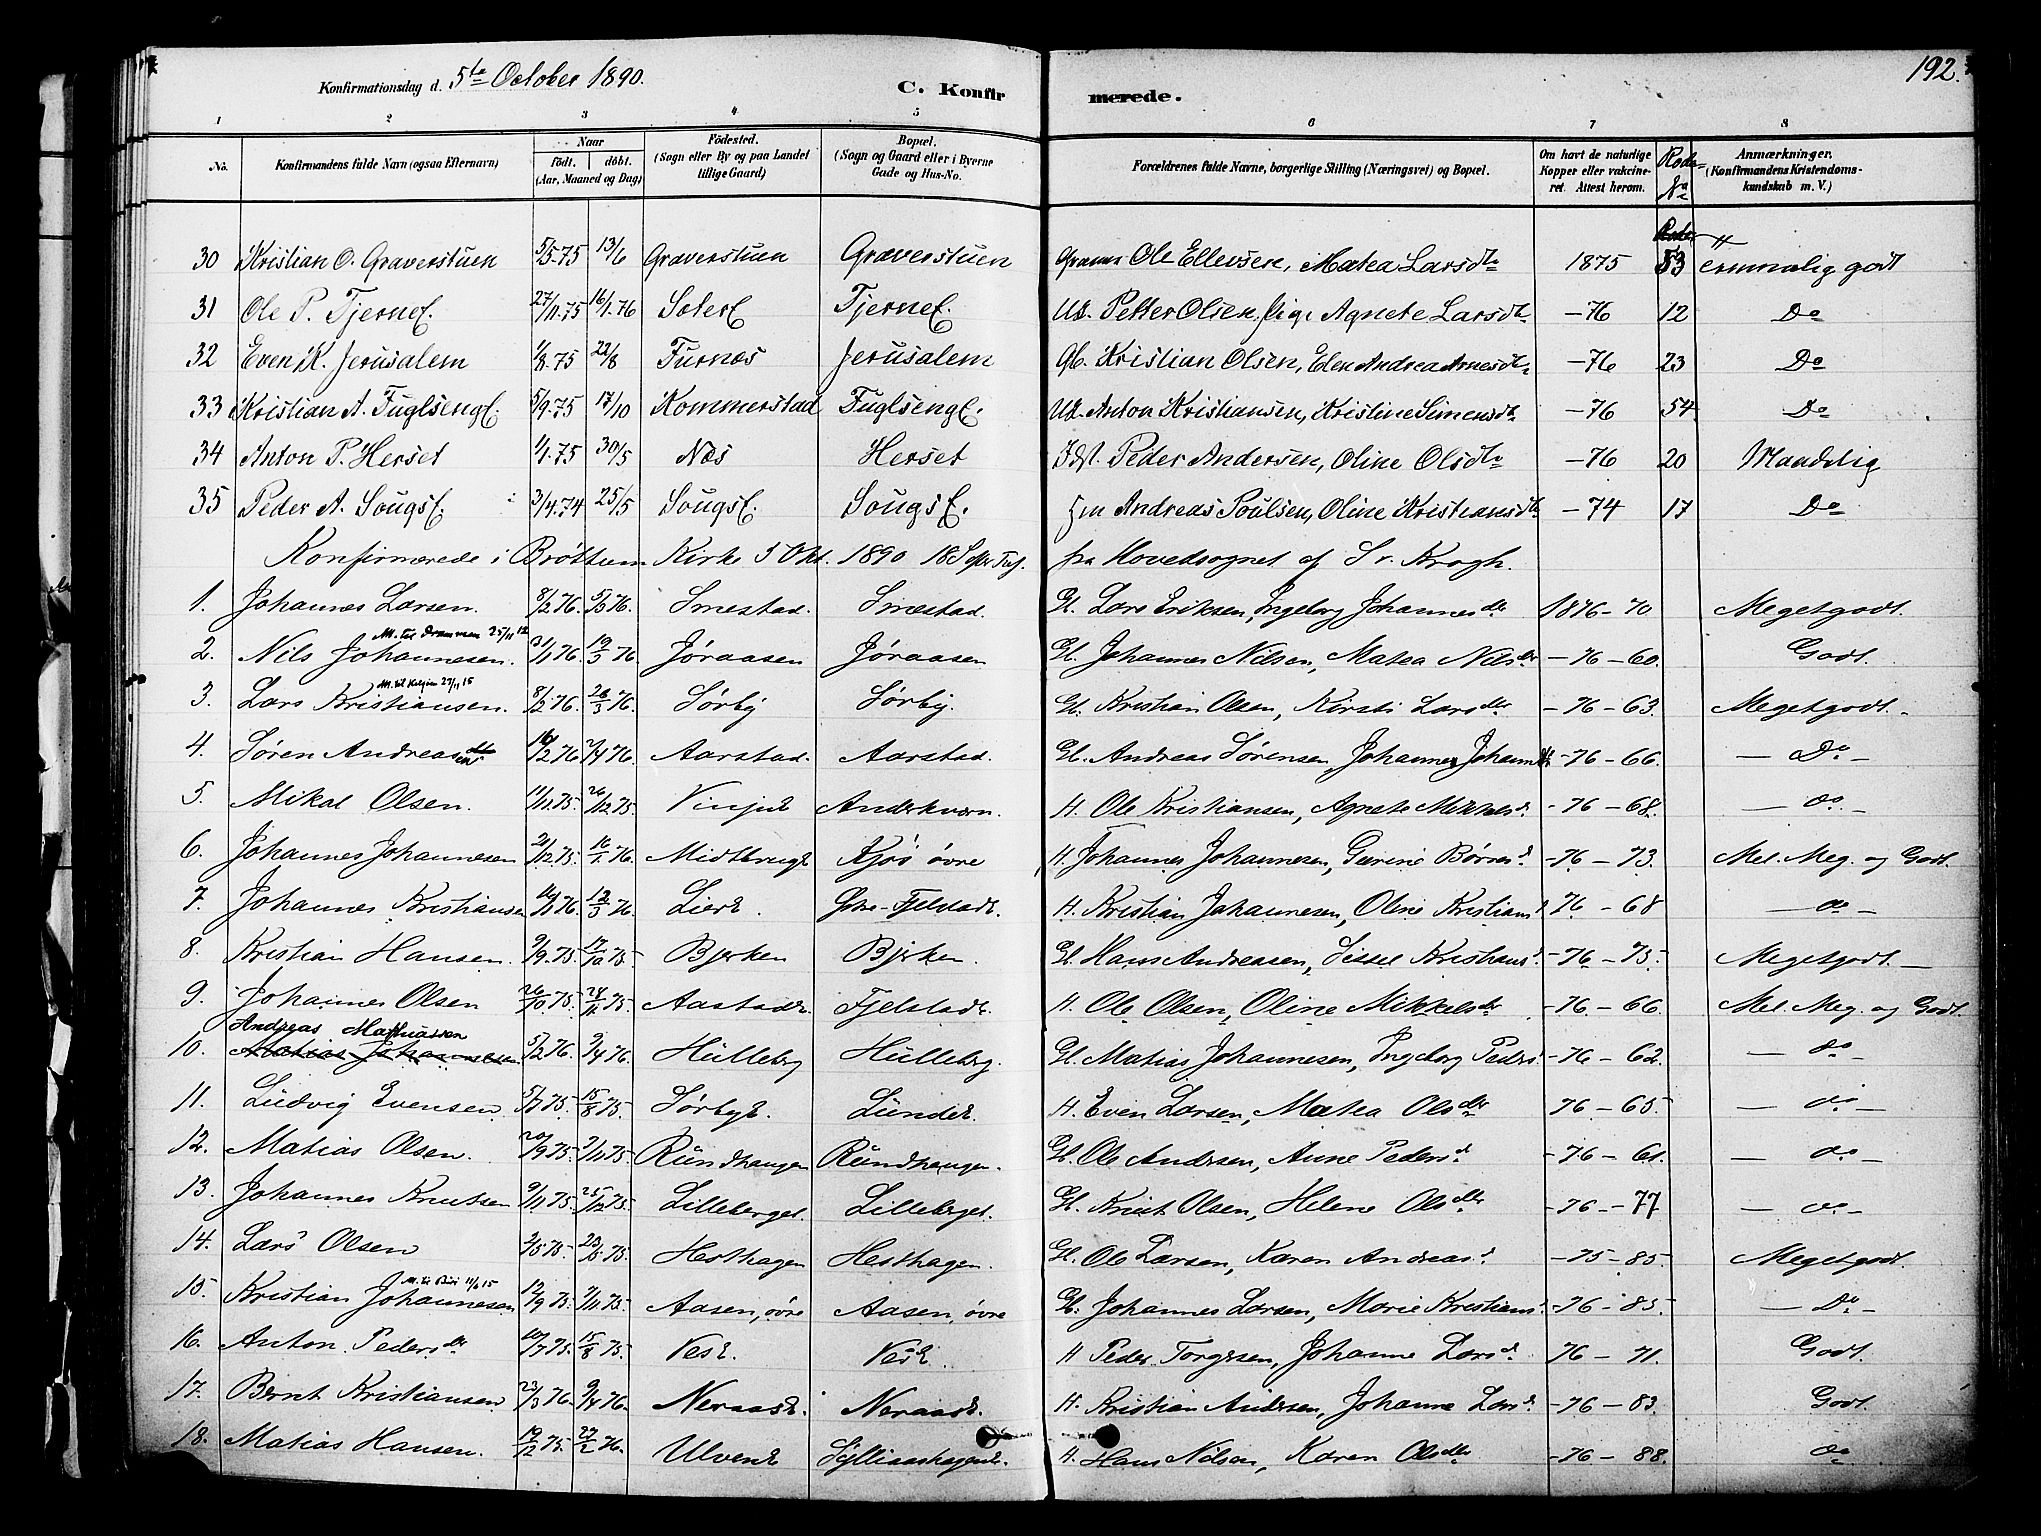 Konfirmationsdag d. 5te October 1890. C. Konfirmerede. 192.
1 2 3 4 5 6 7 8
No. Konfirmandens fulde Navn (ogsaa Efternavn) Naar Födt. döbt. (Aar, Maaned og Dag) Födested. (Sogn eller By og paa Landet tillige Gaard) Bopæl. (Sogn og Gaard eller i Byerne Gade og Hus-No. Forældrenes fulde Navne, borgerlige Stilling (Næringsvei) og Bopæl. Om havt de naturlige Kopper eller vakcineret. Attest herom. Rode No Anmærkninger. (Konfirmandens Kristendomskundskab m. V.)
30 Kristian O. Graverstuen 5/5.75 13/6 Graverstuen Graverstuen Ole Ellevsen, Matea Larsdtr 1875 53 godt
31 Ole P. Tjerne 27/11.75 16/1.76 Tjerne Petter Olsen, Pige Agnete Larsdtr -76 12 Do
32 Even K. Jerusalem 1/8.75 22/8 Furnæs Jerusalem Kristian Olsen, Elen Andrea Arnesdtr -76 23 Do
33 Kristian A. Fuglseng 5/9.75 17/10 Kommerstad Fuglseng Anton Kristiansen, Kristine Simensdtr -76 54 Do
34 Anton P. Herset 1/1.75 30/5 Næs Herset Peder Andersen, Oline Olsdtr -76 20 Maadelig
35 Peder A. Sougs 3/4.74 25/5 Sougs Sougs Andreas Poulsen, Oline Kristiansdtr -74 17 Do
Konfirmerede i Brøttum Kirke 5 Okt. 1890 18 fra Hovedsognet af S v. Krogh.
1. Johannes Larsen. 8/2 76. 5/3 76. Smestad. Smestad. Gl. Lars Eriksen, Ingeborg Johannesdtr 1876-70 Megetgodt.
M. til Drammen 25/11 12
2. Nils Johannesen. 31/1 76. 19/3 76. Jøraasen Jøraasen Gl. Johannes Nilsen, Matea Nilsdtr -76-60. Godt.
3. Lars Kristiansen. 8/2 76. 26/3 76. Sørby Sørby. Gl. Kristian Olsen, Kirsti Larsdtr -76-63. Megetgodt.
4. Søren Andreassen 2 76 2/4 76. Aarstad. Aarstad. Gl. Andreas Sørensen, Johanne -76-66. Do
5. Mikal Olsen. 11/11 75. 26/12 75. Anderkværn. H. Ole Kristiansen, Agnete Mikkelsd. -76-68. do
6. Johannes Johannesen 21/12 75. 16/1 76. Kjøs øvre H. Johannes Johannesen, Gurine -76-73. Mel. Meg. og Godt.
7. Johannes Kristiansen 76. 12/3 76. Lier Fjelstad H. Kristian Johannesen, Oline Kristiansd 76-68 do
8. Kristian Hansen. 9/9.75. 17/10 75. Bjerken Bjerken. Gl. Hans Andreasen, Sissel Kristiansd -76-75. Megetgodt.
9. Johannes Olsen 26/10 75. 28/11 75. Aastad Fjelstad H. Ole Olsen, Oline Mikkelsdtr -76-66 Mel. Meg. og Godt.
Andreas Mathiassen
10. Matias Johannesen 5/2 76. 9/4 76. Hulleberg Hulleberg. Gl. Matias Johannesen, Ingeborg Pedersd -76-62. do
11. Ludvig Evensen 5/7 75. 15/8 75. Sørby Lunde H. Even Larsen, Matea Olsdtr 76-65. do
12. Matias Olsen. 20/9 75. 7/11 75. Rundhaugen Rundhaugen. Gl. Ole Andersen, Anne Pedersd. -76-61. do
13. Johannes Knutsen 9/11 75. 25/12 75. Lilleberget. Lilleberget. Gl. Knut Olsen, Helene Olsdtr -76--77 do
14. Lars Olsen 2/5 75. 23/5 75. Hesthagen Hesthagen. Gl. Ole Larsen, Karen Andreasd -75-85. Megetgodt.
M. til Biri 11/6 15
15. Kristian Johannesen 12/9 75. 7/11 75. Aasen, øvre Aasen, øvre Gl. Johannes Larsen, Marie Kristiansd -76-85. Do
16. Anton Pedersdtr 10/7 75. 15/8 75. Ves Ves H Peder Torgersen, Johanne Larsd. 76-71. Godt.
17. Bernt Kristiansen 23/3 76. 9/4 76. Neraas Neraas H. Kristian Andersen, Johanne Larsd -76-83. Godt.
18. Matias Hansen. 19/12 75. 27/2 76. Ulven Sylliaashagen H. Hans Nilsen, Karen Olsdtr -76-88. do